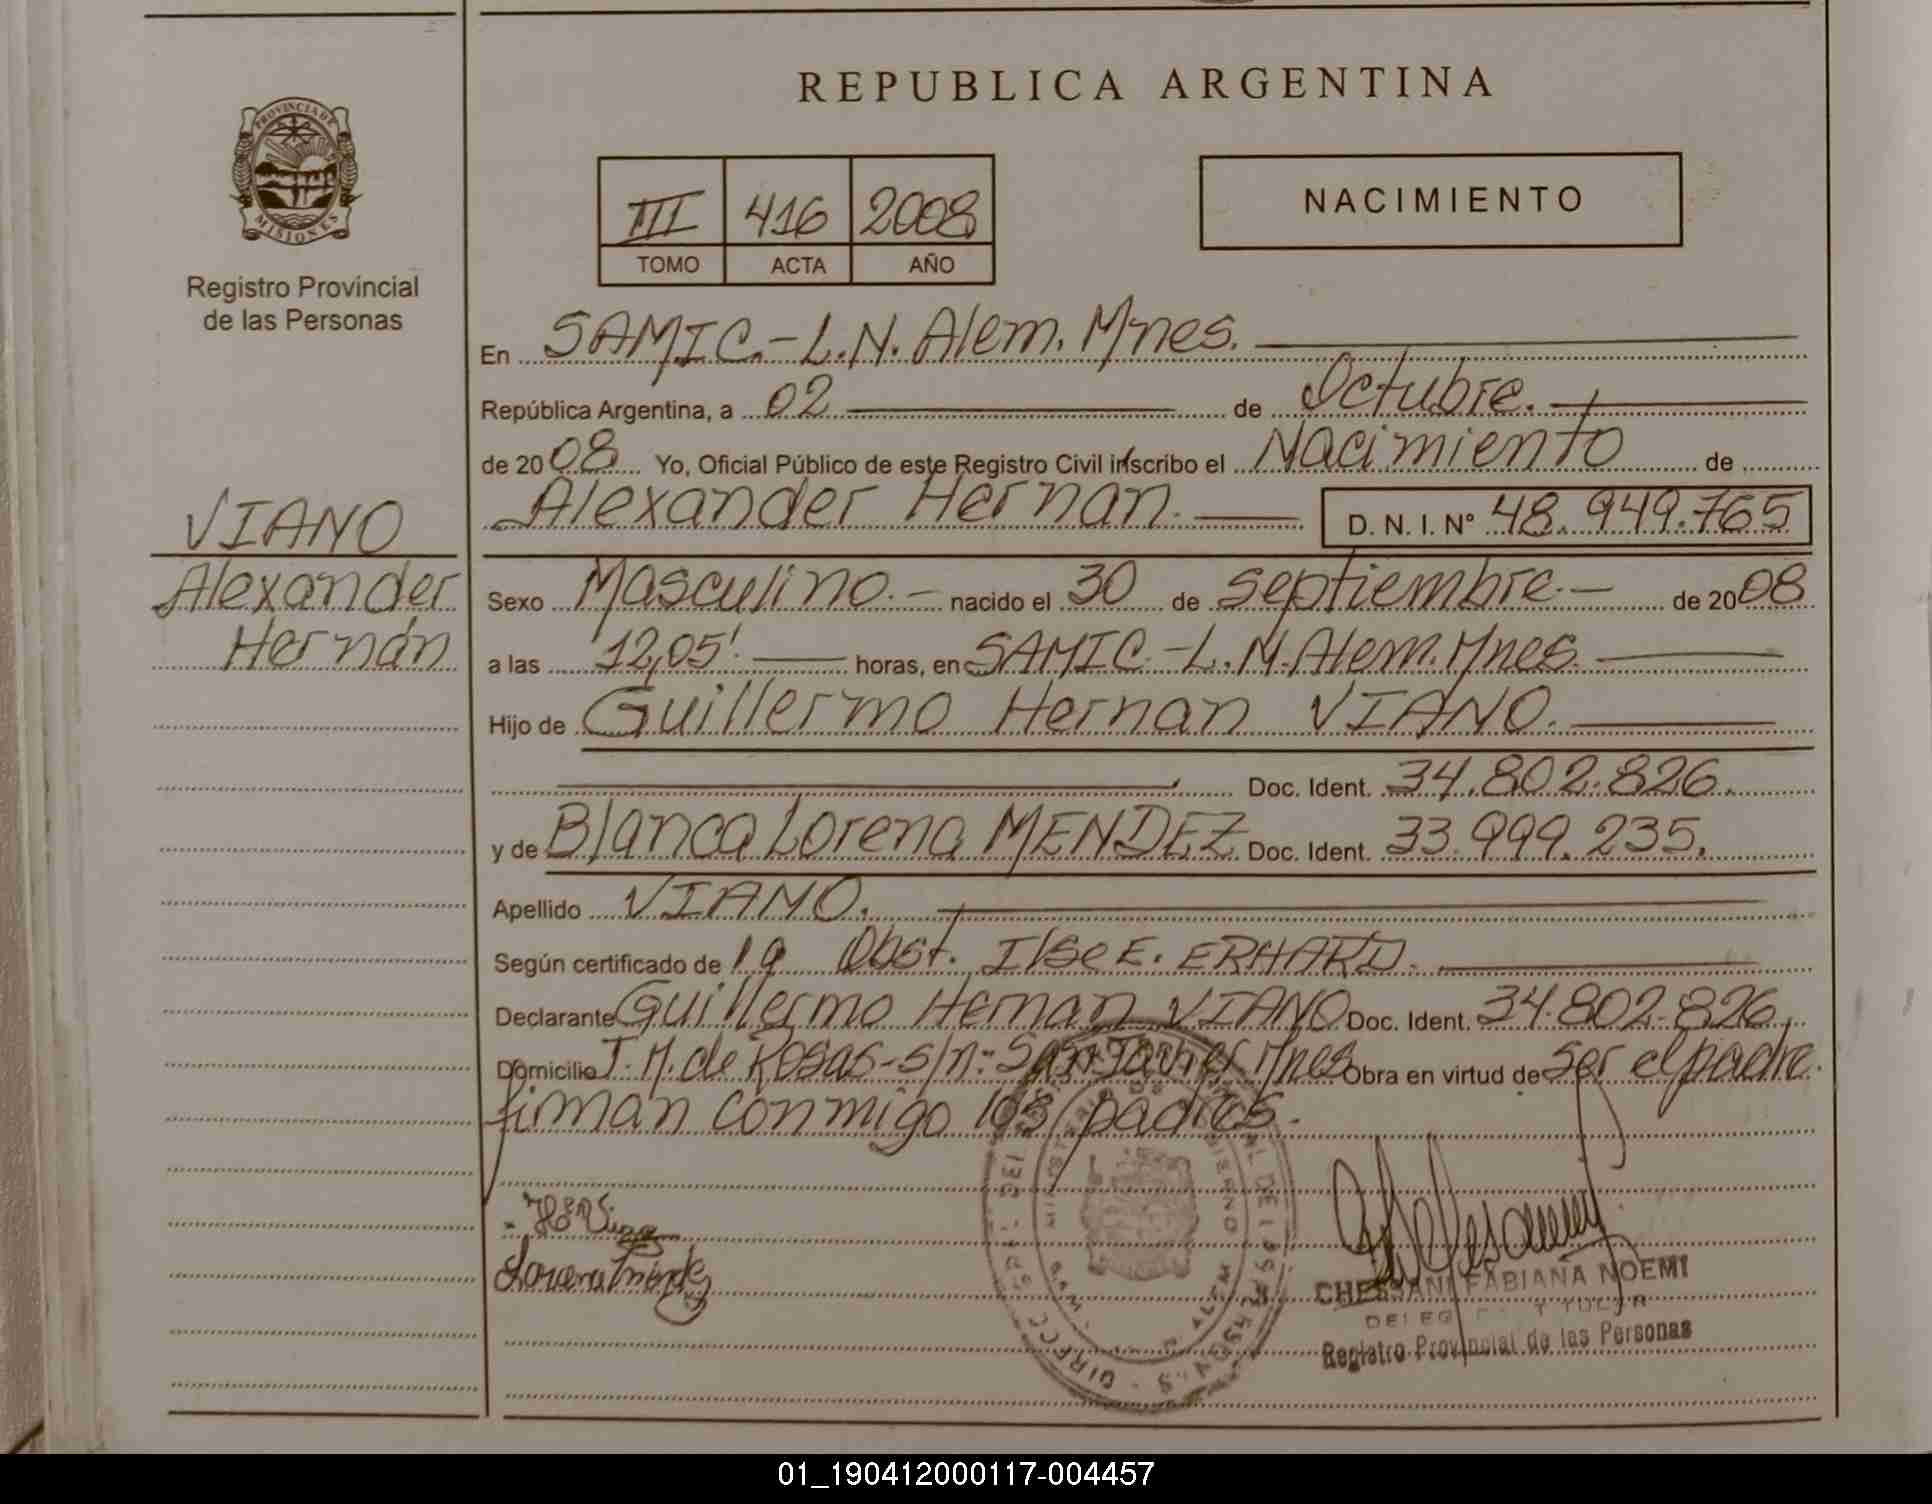 REPUBLICA ARGENTINA
PROVINCIA DE
MISIONES
Registro Provincial
de las Personas
III 416 2008
TOMO ACTA AÑO
NACIMIENTO
En SAMIC.-L.N.Alem.Mnes.
República Argentina, a 02 de Octubre.
de 2008 Yo, Oficial Público de este Registro Civil inscribo el Nacimiento de
Alexander Hernan. D. N. I. Nº 48.949.765
VIANO
Alexander
Hernán
Sexo Masculino.- nacido el 30 de septiembre.- de 2008
a las 12,05'. horas, en SAMIC.-L.N.Alem.Mnes.
Hijo de Guillermo Hernan VIANO.
Doc. Ident. 34.802.826.
y de Blanca Lorena MENDEZ Doc. Ident. 33.999.235.
Apellido VIANO.
Según certificado de la Obst. Ilse E. ERHARD.
Declarante Guillermo Hernan VIANO Doc. Ident. 34.802.826.
Domicilio J.M.de Rosas-s/n: San Javier Mnes Obra en virtud de ser el padre.
firman conmigo los padres.
Lorena Mendez
CHESSANI FABIANA NOEMI
Registro Provincial de las Personas
01_190412000117-004457